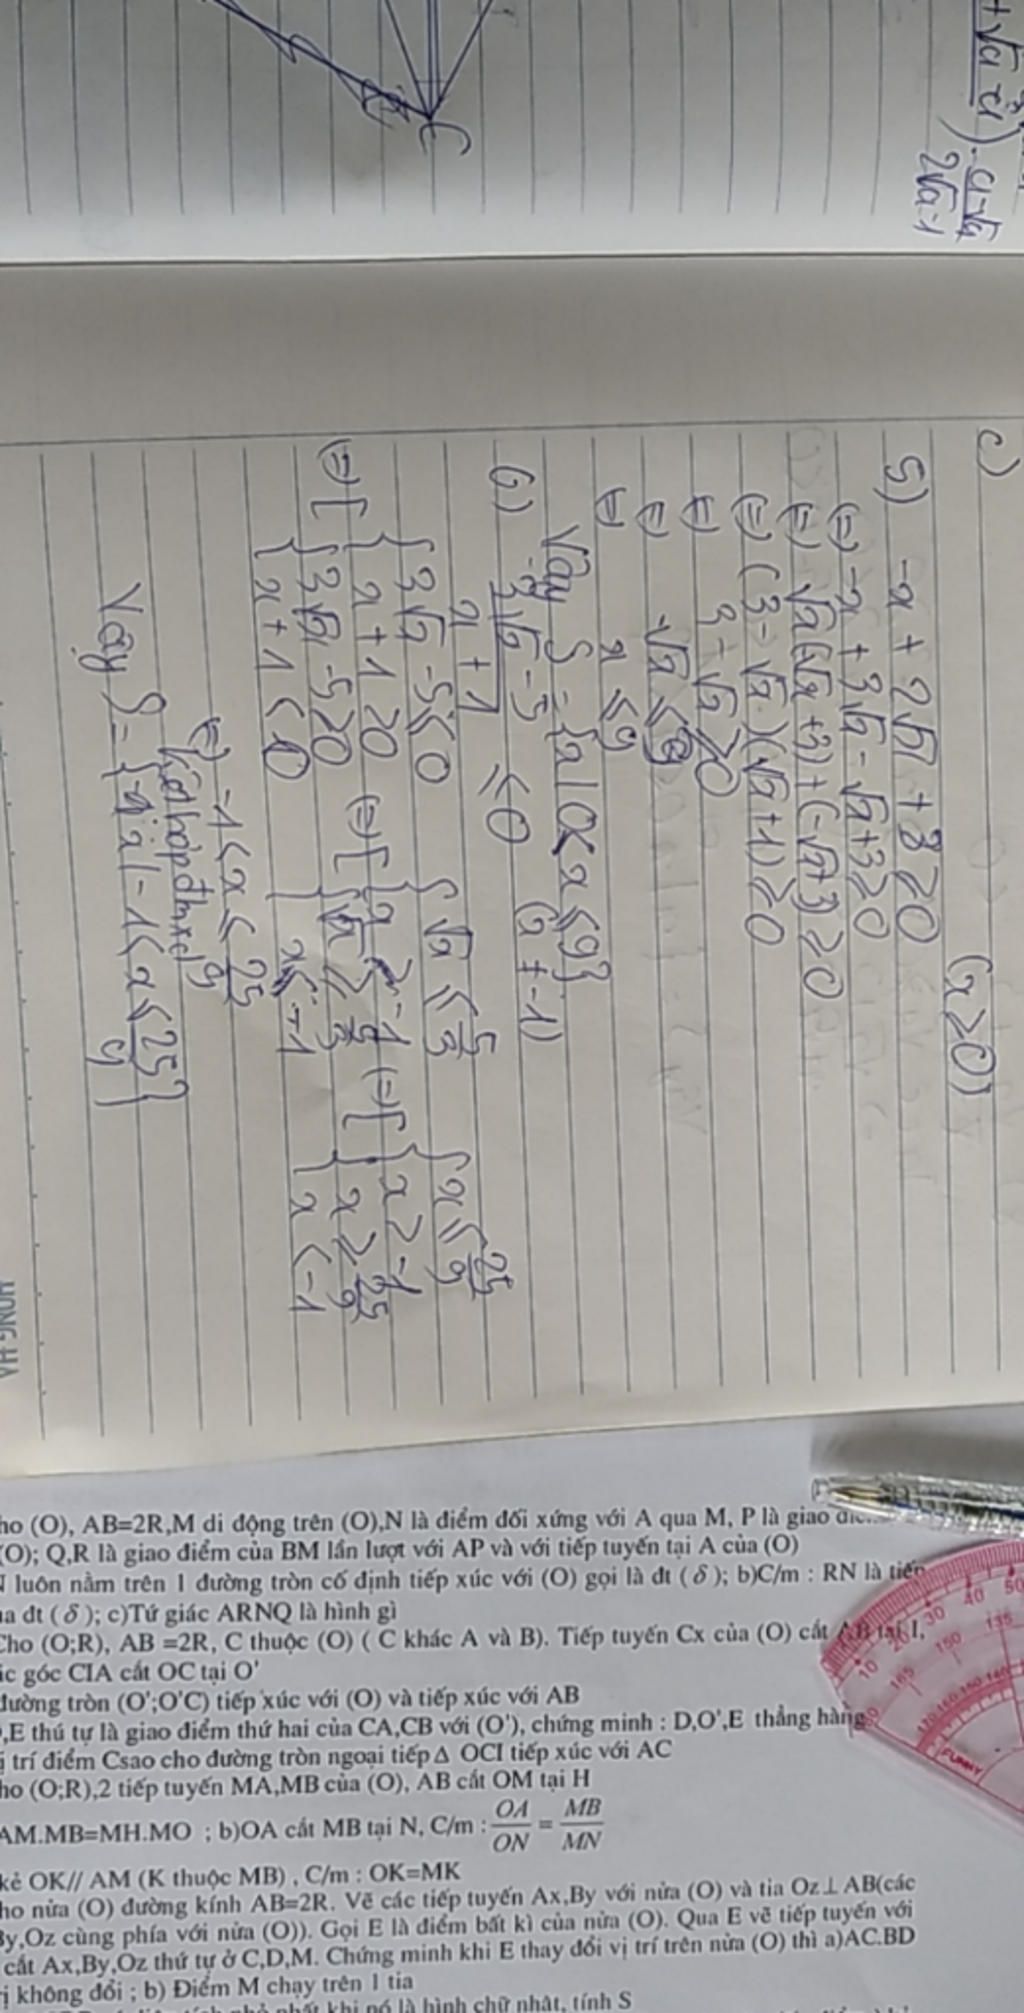 +√a+a) . a-√a
2√a-1
C
c)
5) -x + 2√x + 3 ≥ 0 (x ≥ 0)
(=) -x + 3√x - √x + 3 ≥ 0
(=) -√x(√x + 3) + (-√x + 3) ≥ 0
(=) (3 - √x)(√x + 1) ≥ 0
(=) 3 - √x ≥ 0
(=) √x ≤ 3
(=) x ≤ 9
Vậy S = {x | 0 < x ≤ 9}
6) 3√x - 5 / x + 1 ≤ 0 (x ≠ -1)
(=) [ { 3√x - 5 ≤ 0
x + 1 ≥ 0
{ 3√x - 5 ≥ 0
x + 1 < 0
(=) [ { √x ≤ 5/3
x > -1
{ √x ≥ 5/3
x < -1
(=) [ { x ≤ 25/9
x > -1
{ x ≥ 25/9
x < -1
(=) -1 < x ≤ 25/9
Kết hợp đkxđ
Vậy S = {x | -1 < x ≤ 25/9}
HỒNG HÀ
ho (O), AB=2R,M di động trên (O),N là điểm đối xứng với A qua M, P là giao
(O); Q,R là giao điểm của BM lần lượt với AP và với tiếp tuyến tại A của (O)
N luôn nằm trên 1 đường tròn cố định tiếp xúc với (O) gọi là đt ( δ ); b)C/m : RN là tiếp
ủa đt ( δ ); c)Tứ giác ARNQ là hình gì
Cho (O;R), AB =2R, C thuộc (O) ( C khác A và B). Tiếp tuyến Cx của (O) cắt AB tại I,
ác góc CIA cắt OC tại O'
đường tròn (O';O'C) tiếp xúc với (O) và tiếp xúc với AB
,E thú tự là giao điểm thứ hai của CA,CB với (O'), chứng minh : D,O',E thẳng hàng
ị trí điểm Csao cho đường tròn ngoại tiếp Δ OCI tiếp xúc với AC
ho (O;R),2 tiếp tuyến MA,MB của (O), AB cắt OM tại H
AM.MB=MH.MO ; b)OA cắt MB tại N, C/m : OA/ON = MB/MN
kẻ OK// AM (K thuộc MB) , C/m : OK=MK
ho nửa (O) đường kính AB=2R. Vẽ các tiếp tuyến Ax,By với nửa (O) và tia Oz⊥ AB(các
By,Oz cùng phía với nửa (O)). Gọi E là điểm bất kì của nửa (O). Qua E vẽ tiếp tuyến với
cắt Ax,By,Oz thứ tự ở C,D,M. Chứng minh khi E thay đổi vị trí trên nửa (O) thì a)AC.BD
ị không đổi ; b) Điểm M chạy trên 1 tia
nhỏ nhất khi nó là hình chữ nhật, tính S
10 20 30 40 50
165 150 135
FUNNY